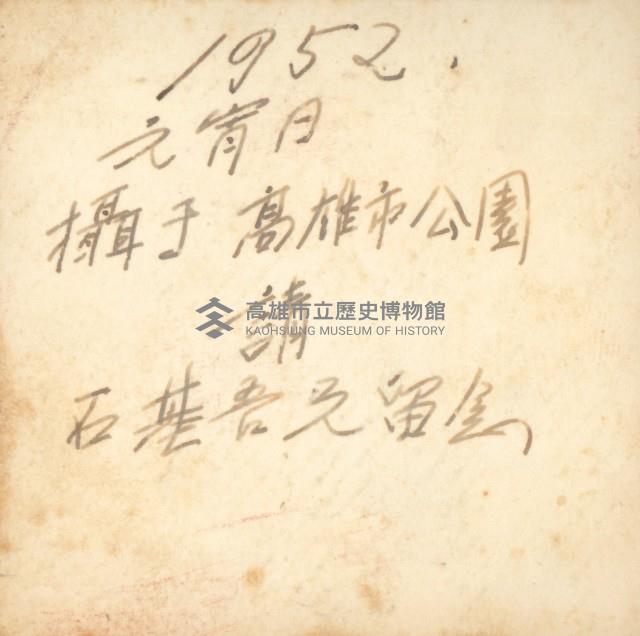 1952.
元宵日
攝于高雄市公園
請
高雄市立歷史博物館
KAOHSIUNG MUSEUM OF HISTORY
石基吾兄留念